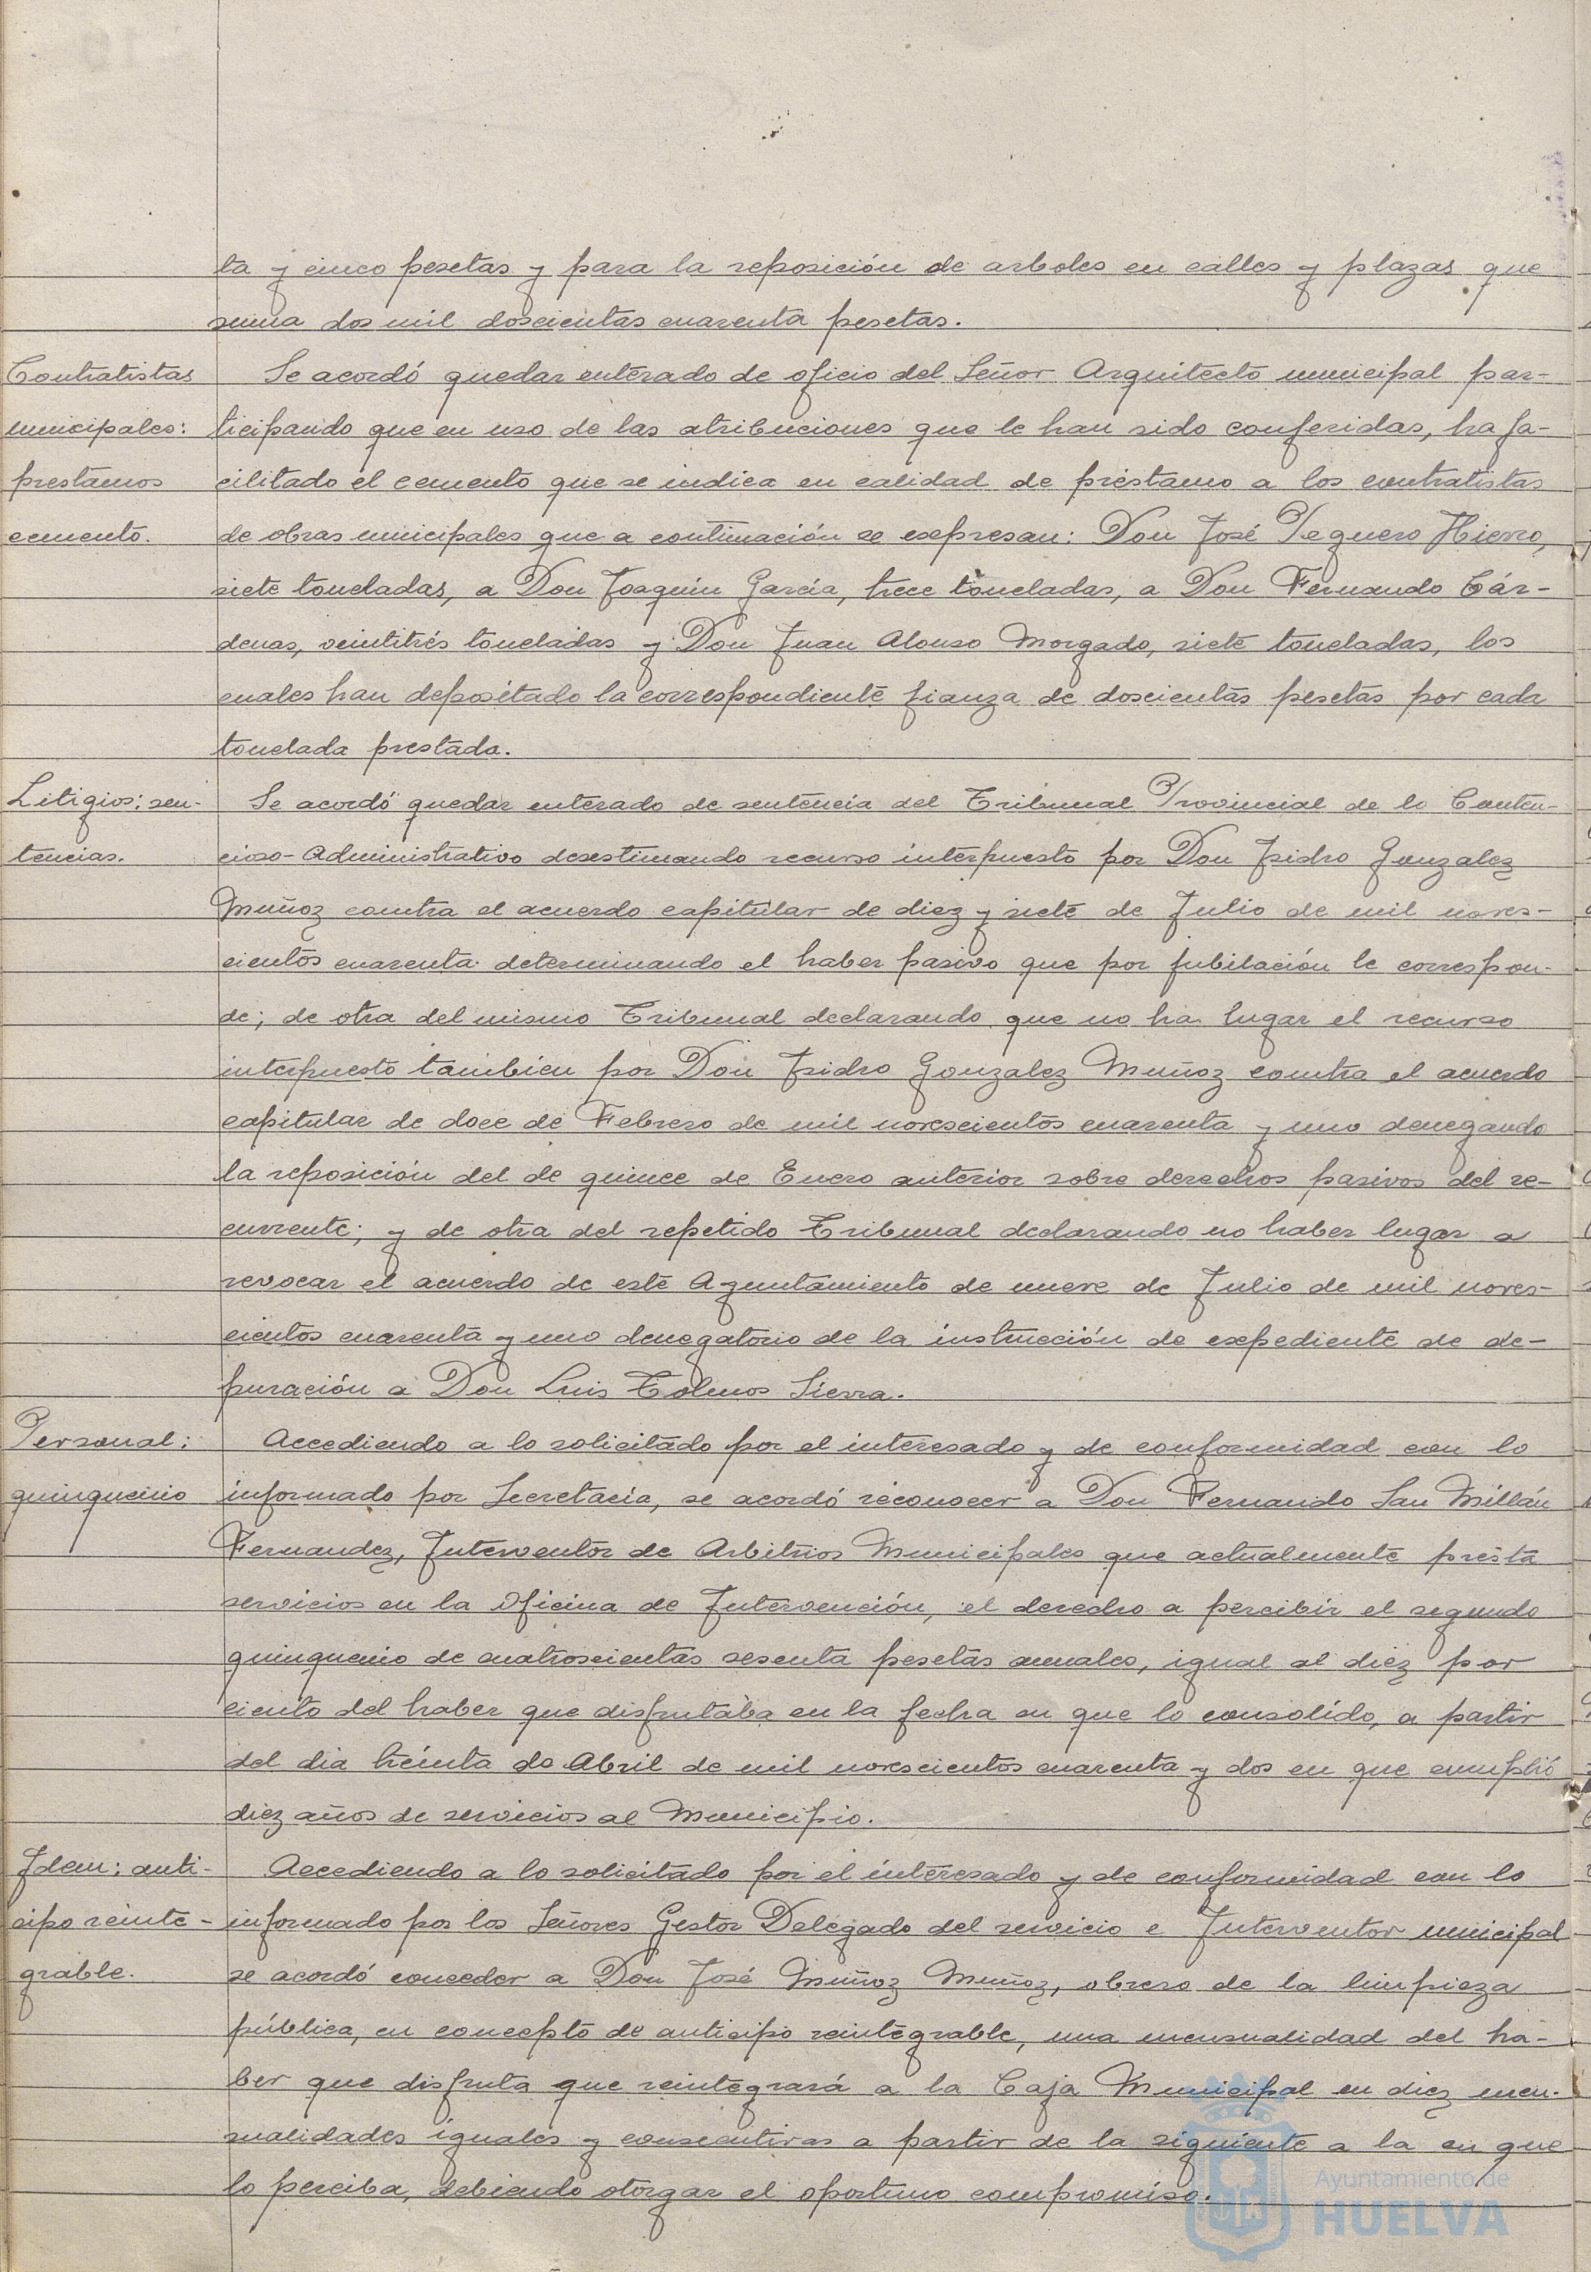 ta y cinco pesetas y para la reposición de arboles en calles y plazas que
suma dos mil doscientas cuarenta pesetas.
Contratistas
municipales:
prestamos
cemento.
Se acordó quedar enterado de oficio del Señor Arquitecto municipal par-
ticipando que en uso de las atribuciones que le han sido conferidas, ha fa-
cilitado el cemento que se indica en calidad de préstamo a los contratistas
de obras municipales que a continuación se expresan: Don José Peguero Hierro,
siete toneladas, a Don Joaquin García, trece toneladas, a Don Fernando Cár-
denas, veintitrés toneladas y Don Juan Alonso Morgado, siete toneladas, los
cuales han depositado la correspondiente fianza de doscientas pesetas por cada
tonelada prestada.
Litigios; sen-
tencias.
Se acordó quedar enterado de sentencia del Tribunal Provincial de lo Conten-
cioso-Administrativo desestimando recurso interpuesto por Don Isidro Gonzalez
Muñoz contra el acuerdo capitular de diez y siete de Julio de mil noves-
cientos cuarenta determinando el haber pasivo que por jubilación le correspon-
de; de otra del mismo Tribunal declarando que no ha lugar el recurso
interpuesto tambien por Don Isidro Gonzalez Muñoz contra el acuerdo
capitular de doce de Febrero de mil novescientos cuarenta y uno denegando
la reposición del de quince de Enero anterior sobre derechos pasivos del re-
currente; y de otra del repetido Tribunal declarando no haber lugar a
revocar el acuerdo de este Ayuntamiento de nueve de Julio de mil noves-
cientos cuarenta y uno denegatorio de la instrucción de expediente de de-
puración a Don Luis Tolmos Sierra.
Personal;
quinquenio
Accediendo a lo solicitado por el interesado y de conformidad con lo
informado por Secretaría, se acordó reconocer a Don Fernando San Millán
Fernandez, Interventor de Arbitrios Municipales que actualmente presta
servicios en la Oficina de Intervención, el derecho a percibir el segundo
quinquenio de cuatroscientas sesenta pesetas anuales, igual al diez por
ciento del haber que disfrutaba en la fecha en que lo consolido, a partir
del dia treinta de Abril de mil novescientos cuarenta y dos en que cumplió
diez años de servicios al Municipio.
Idem; anti-
cipo reinte-
grable.
Accediendo a lo solicitado por el interesado y de conformidad con lo
informado por los Señores Gestor Delegado del servicio e Interventor municipal
se acordó conceder a Don José Muñoz Muñoz, obrero de la limpieza
pública, en concepto de anticipo reintegrable, una mensualidad del ha-
ber que disfruta que reintegrará a la Caja Municipal en diez men-
sualidades iguales y consecutivas a partir de la siguiente a la en que
lo perciba, debiendo otorgar el oportuno compromiso.
Ayuntamiento de
HUELVA